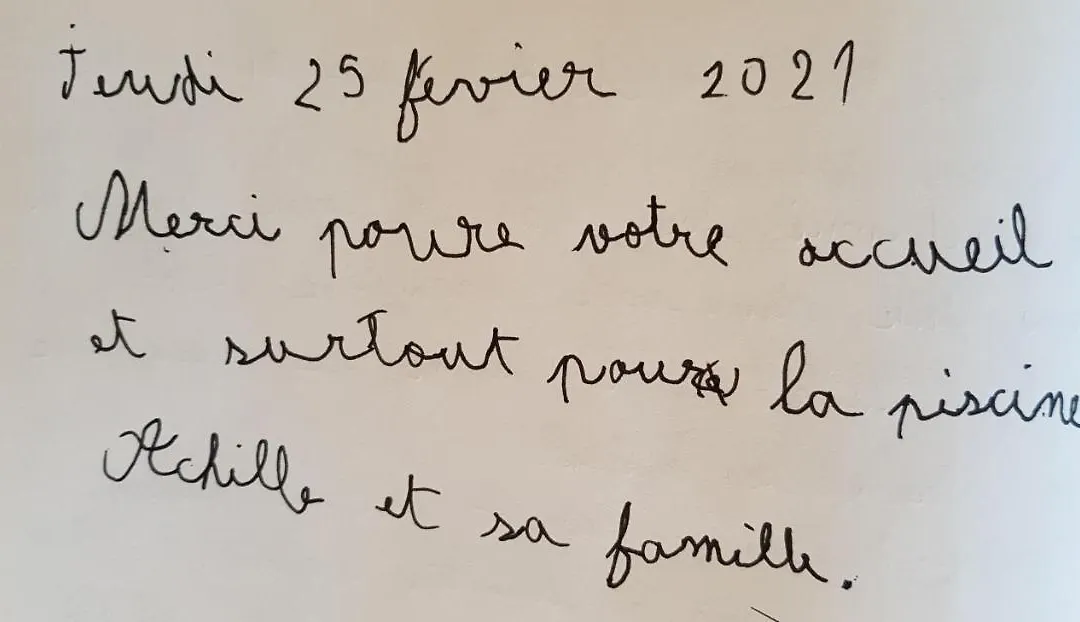 Jeudi 25 févier 2021
Merci poure votre accueil
et surtout pour la piscine
Achille et sa famille.